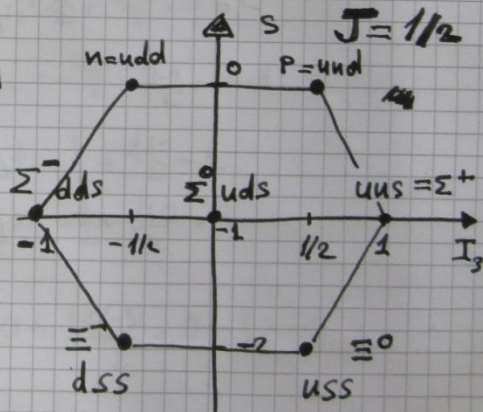 S J = 1/2
n=udd 0 P=uud
Σ⁻ dds Σ⁰ uds uus = Σ⁺
-1 -1/2 -1 1/2 1 I₃
Ξ⁻ -2 Ξ⁰
dss uss